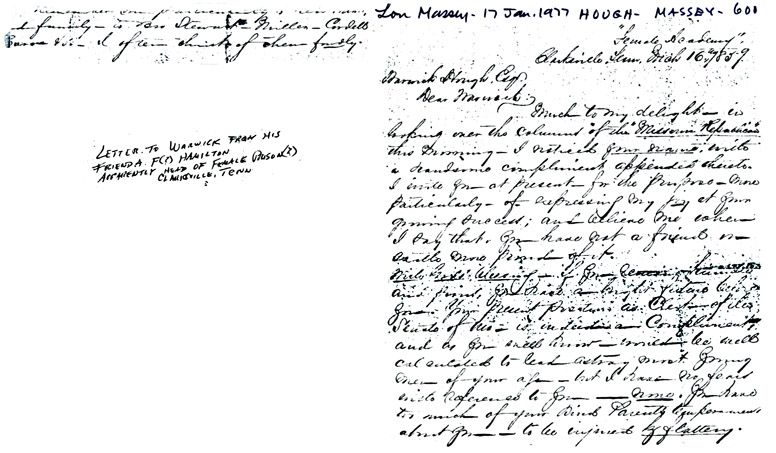 Lou Massey - 17 Jan. 1977 HOUGH - MASSEY - 600
d family - to Ben Stewart - Miller - Cordell
I often think of them fondly.
LETTER TO WARWICK FROM HIS
FRIEND A. F(?) HAMILTON
APPARENTLY HEAD OF FEMALE PRISON(?)
CLARKSVILLE, TENN
"Female Academy"
Clarksville, Tenn. Mch 16, 1859.
Warwick Hough, Esq.
Dear Warwick;
Much to my delight - in
looking over the columns of the "Missouri Republican"
this morning - I noticed your name, with
a handsome compliment appended thereto.
I write you at present - for the purpose - more
particularly - of expressing my joy at your
growing success; and believe me when
I say that, you have not a friend on
earth more proud of it.
With God's blessing - if you
and firm, you have a bright future before
you. Your present position as Clerk of the
Senate of Mo - is indeed a Compliment,
and as you well know - would be well
calculated to lead astray most young
men of your age - but I have no fears
with reference to you - none. You have
too much of your kind Parents
about you - to be injured by flattery.